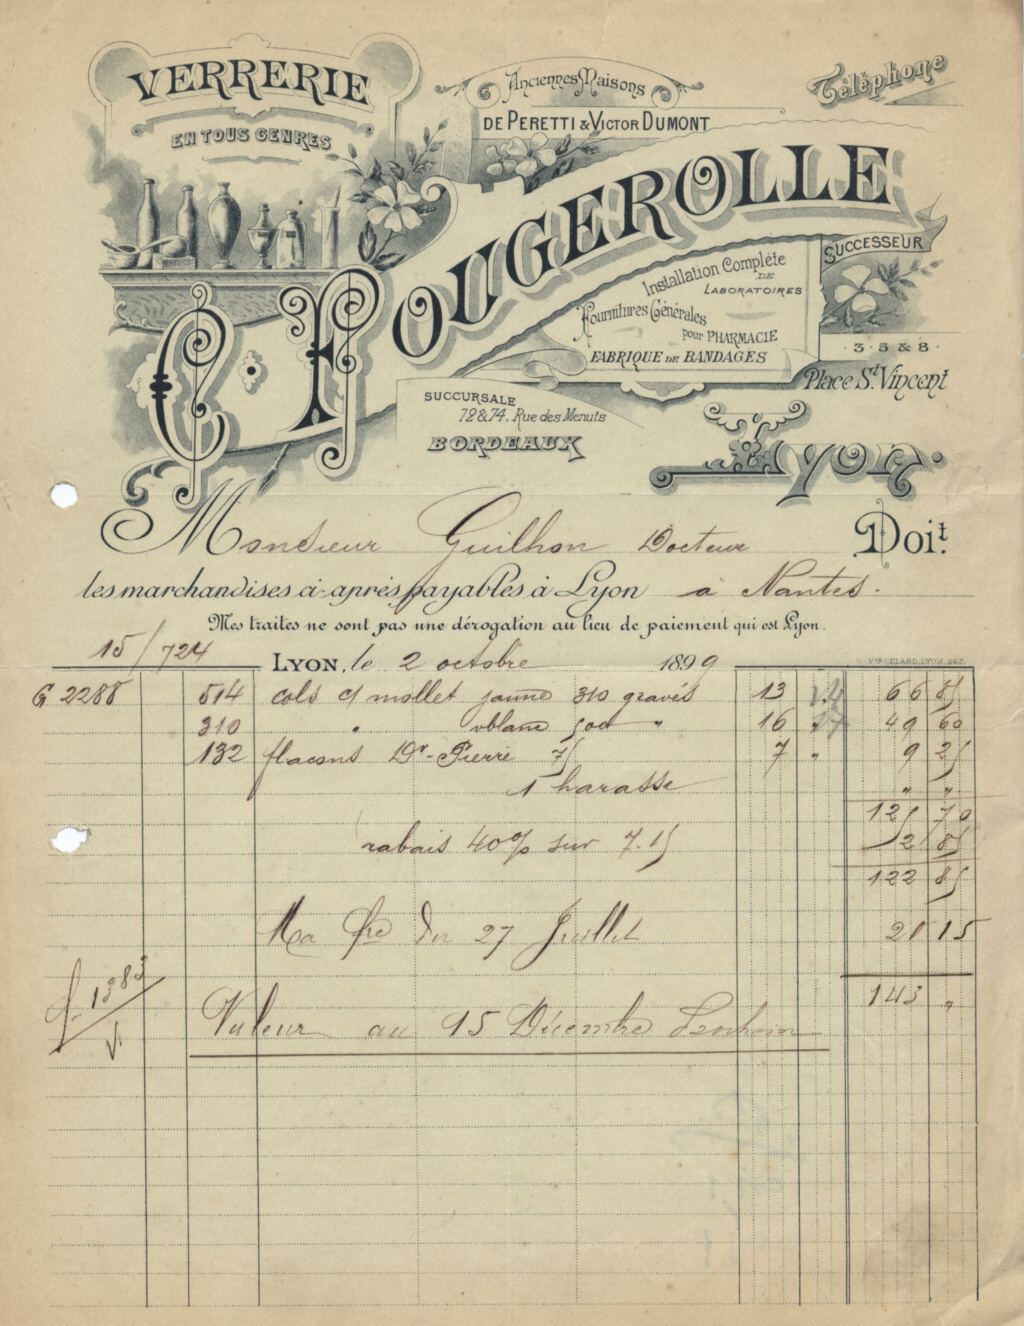 VERRERIE
EN TOUS GENRES
Anciennes Maisons
DE PERETTI & VICTOR DUMONT
Téléphone
C. FOUGEROLLE
SUCCESSEUR
Installation Complète
DE
LABORATOIRES
Fournitures Générales
pour PHARMACIE
FABRIQUE DE BANDAGES
3·5 & 8·
Place St. Vincent
SUCCURSALE
72 & 74, Rue des Menuts
BORDEAUX
Lyon.
Monsieur Guilhon Docteur Doit
les marchandises ci-après payables à Lyon à Nantes.
Mes traites ne sont pas une dérogation au lieu de paiement qui est Lyon.
15/724
LYON, le 2 octobre 1899
Vve GELARD, LYON
G 2288 514 cols c/ mollet jaune 310 gravés 13 66 85
310 " blanc 500 " 16 " 49 60
132 flacons Dr. Pierre 75 7 " 9 25
1 harasse " "
125 70
rabais 40% sur 7.15 2 85
122 85
Ma fre du 27 Juillet 20 15
143 "
Valeur au 15 Décembre